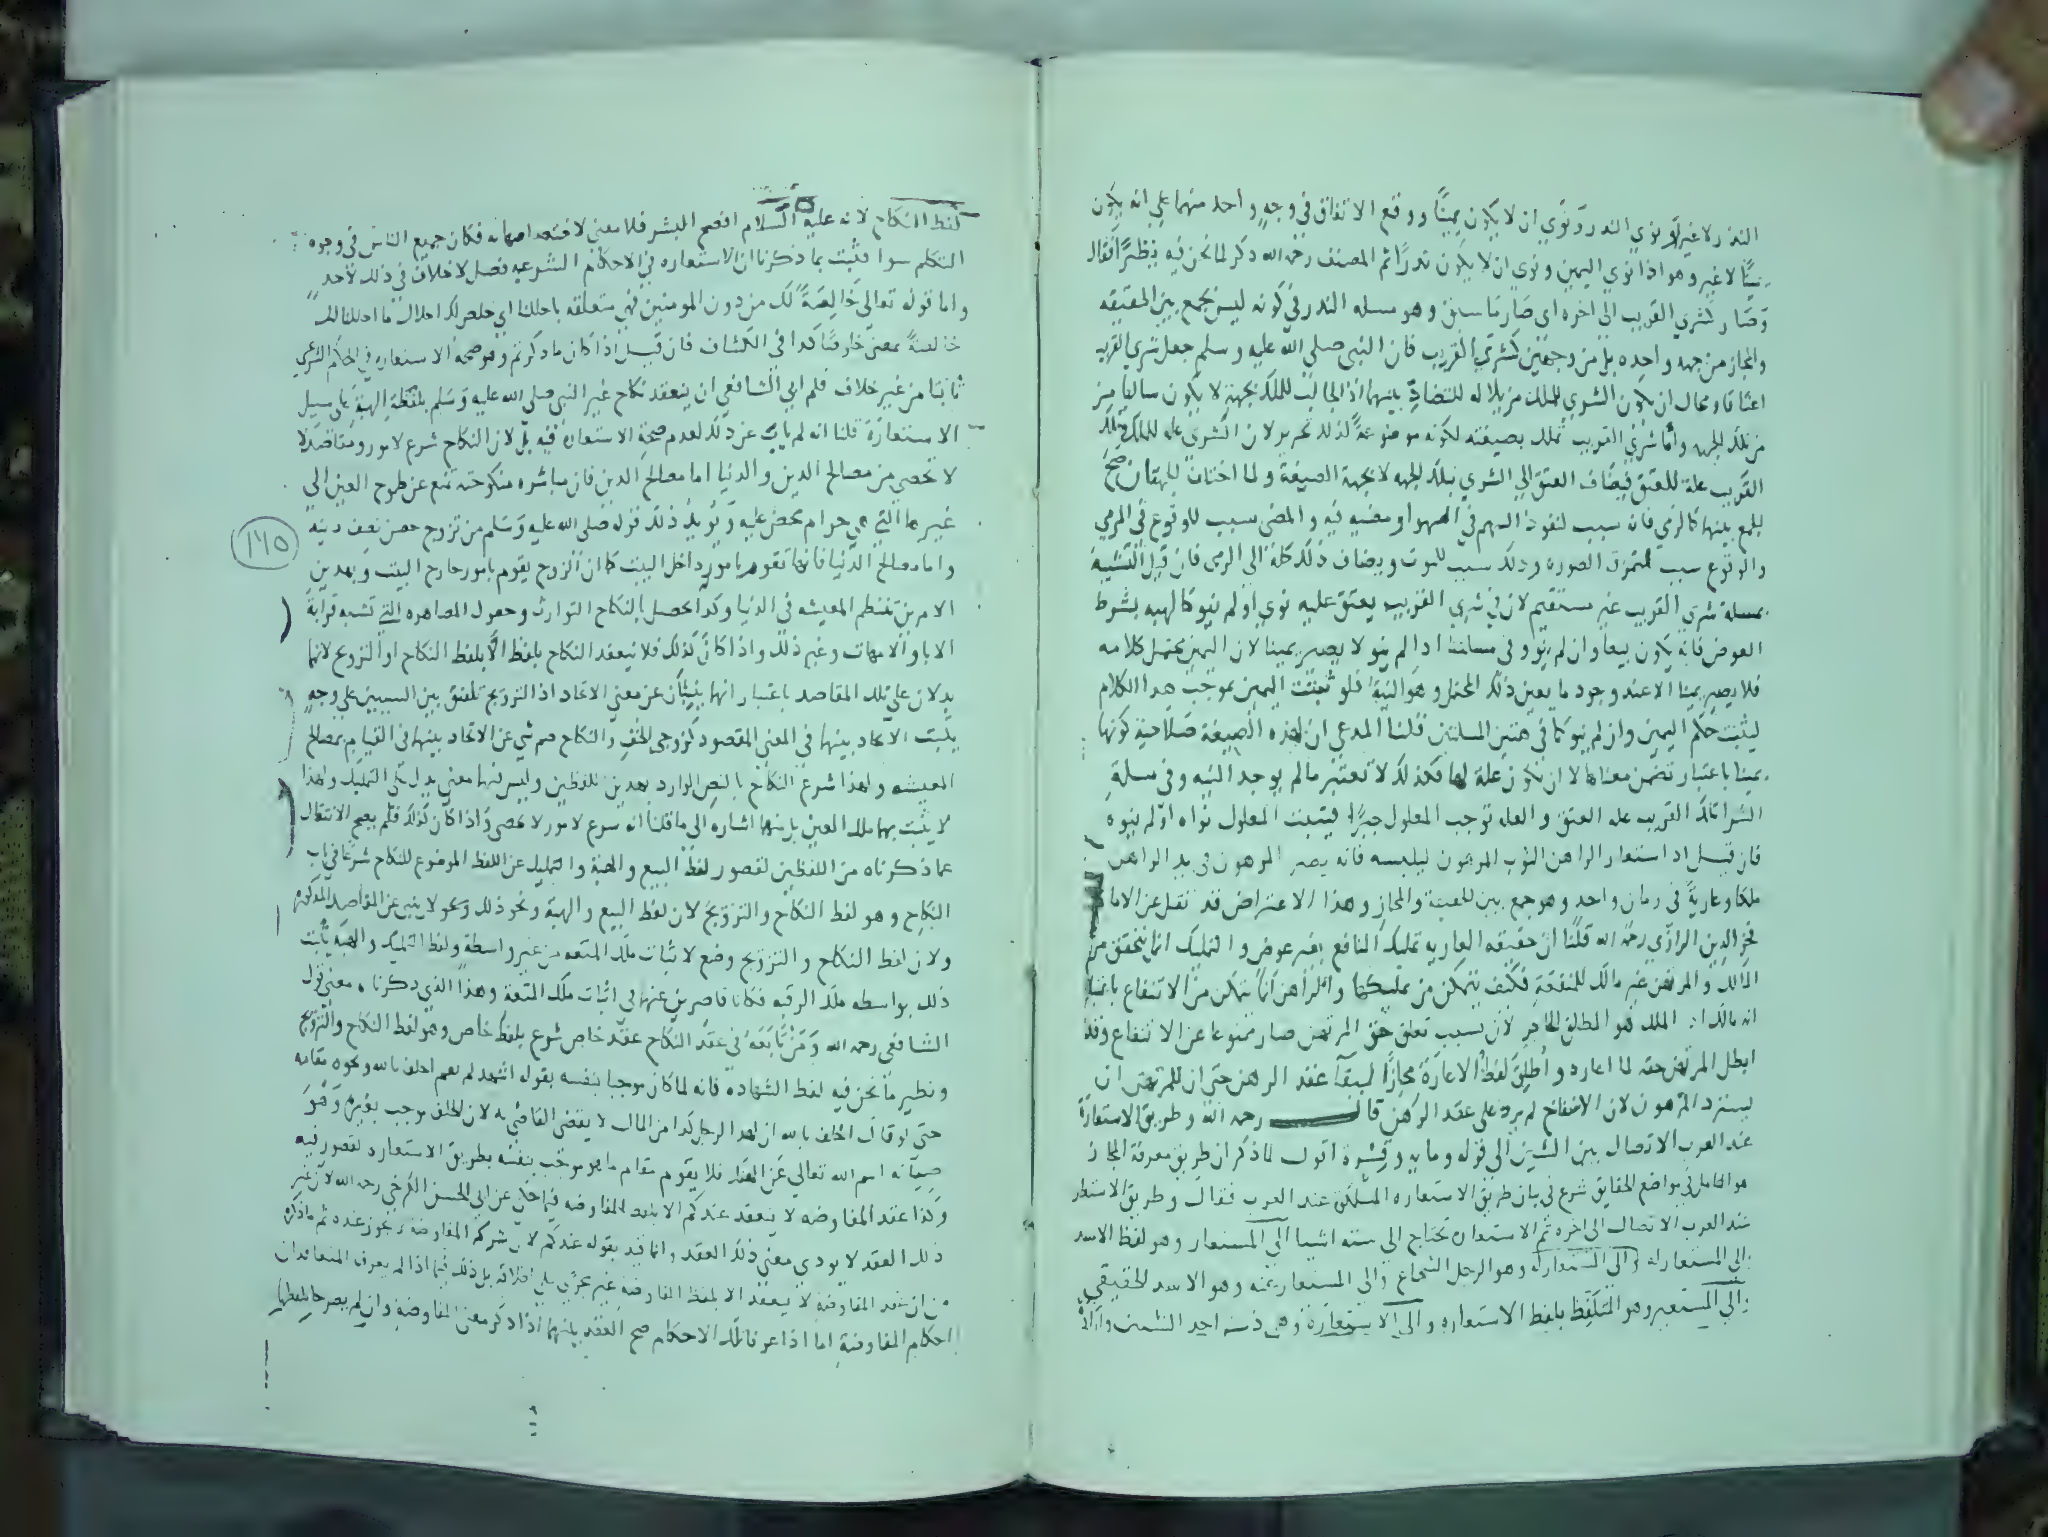 النذر لا غير لو نوي النذر ونوي ان لا يكون يمينًا ووقع الاتفاق في وجهٍ واحد منهما علي انه يكون
يمينًا لا غير وهو اذا نوي اليمين ونوي ان لا يكون نذرًا ثم المصنف رحمه الله ذكر لما نحن فيه نظيرًا فقال
وصار كشري القريب الى اخره اى صار ما سبق وهو مسله النذر في كونه ليس بجمع بين الحقيقه
والمجاز من جهه واحده بل من وجهين كشري القريب فان النبي صلى الله عليه وسلم جعل شري القريب
اعتاقا ومحال ان يكون الشري للملك مزيلا له للتضادّ بينهما اذ الجالب للملك بجهةٍ لا يكون سالبا من
من تلك الجهه وأمّا شري القريب تملك بصيغته لكونه موضوعةً لذلك تحرير لان الشري عله للملك وملك
القريب علة للعتق فيضاف العتق الي الشري بتلك الجهه لا بجهة الصيغة ولما اختلف الجهتان صحّ
الجمع بينهما كالرمي فانه سبب لنفوذ السهم في الهوا ومضيه فيه والمضي سبب للوقوع في المرمي
والوقوع سبب لتمزق الصوره وذلك سبب للموت ويضاف ذلك كلهُ الى الرمي فان قيل التشبيه
بمسلة شري القريب غير مستقيم لان في شري القريب يعتق عليه نوي او لم ينو كالهبه بشرط
العوض فانه يكون بيعا وان لم ينو وفي مسلتنا اذا لم ينو لا يصير يمينا لان اليمين محتمل كلامه
فلا يصير يمينا الا عند وجود ما يعين ذلك المحتمل وهو النية فلو ثبتت اليمين بموجب هذا الكلام
ليثبت حكم اليمين وان لم ينو كما في هتين المسلتين قلنا المدعي ان لهذه الصيغة صلاحية كونها
يمينا باعتبار تضمن معناها لا ان تكون علة لها فكذلك لا تعتبر ما لم يوجد النيه وفي مسلة
الشرا تملك القريب عله العتق والعله توجب المعلول جبرًا فيثبت المعلول نواه او لم ينوه
فان قيل اذا استعار الراهن الثوب المرهون ليلبسه فانه يصير المرهون في يد الراهن
ملكا وعاريةً في زمان واحد وهو جمع بين الحقيقة والمجاز وهذا الاعتراض قد نقل عن الامام
فخر الدين الرازي رحمه الله قلنا ان حقيقه العاريه تمليك المنافع بغير عوض والتمليك انما يتحقق من
المالك والمرتهن غير مالك للمنفعةِ فكيف يتمكن من تمليكها والراهن انما يتمكن من الانتفاع باعتبار
انه مالك اذ الملك هو المطلق الحاجز لان بسبب تعلق حق المرتهن صار ممنوعا عن الانتفاع وقد
ابطل المرتهن حقه لما اعاره وأُطلِقَ لفظُ الاعارة مجازًا لبقآء عقد الرهن حتي ان للمرتهن ان
يسترد المرهون لان الانفساخ لم يرد على عقد الرهن قال رحمه الله وطريق الاستعارة
عند العرب الاتصال بين الشيئن الى قوله وما به وقشره اقول لما ذكر ان طريق معرفة المجاز
هو التامل في مواضع الحقايق شرع في بيان طريق الاستعاره المسلكن عند العرب فقال وطريق الاستعار
عند العرب الاتصال الى اخره ثم الاستعاره تحتاج الي سته اشيا الي المستعار وهو لفظ الاسد
والي المستعار له وهو الرجل الشجاع والي المستعار عنه وهو الاسد الحقيقي
والي المستعير وهو المتلفظ بلفظ الاستعاره والى الاستعارة وهي ذكر احد الشيئين وارادة
لفظ النكاح لانه عليه السلام افصح البشر فلا معني لاختصاصها به فكان جميع الناس في وجوه
التكلم سوا فثبت بما ذكرنا ان الاستعاره في الاحكام الشرعيه فصل لا خلاف في ذلك لأحدٍ
واما قوله تعالي خَالِصَةً لك من دون المومنين فهي متعلقه باحللنا اي خلص لك احلال ما احللنا لك
خالصةً بمعني خلوصًا كذا في الكشاف فان قيل اذا كان ما ذكرتم وهو صحة الاستعاره في الحكم الشرعي
ثابتا من غير خلاف فلم ابي الشافعي ان ينعقد نكاح غير النبي صلى الله عليه وسلم بلفظة الهبة على سبيل
الاستعارة قلنا انه لم ياب عن ذلك لعدم صحة الاستعارة فيه بل لان النكاح شرع لامور ومقاصد لا
لا تحصى من مصالح الدين والدنيا اما مصالح الدين فان مباشره منكوحته تمنع عن طموح العين الي
غيرها التي هي حرام محض عليه ويُويد ذلك قوله صلى الله عليه وسَلم من تزوج حصن نصف دينه
واما مصالح الدنيا فانها تقوم بامور داخل البيت كما ان الزوج يقوم بامور خارج البيت وبهدين
الامرين تنتظم المعيشه في الدنيا وكذا يحصل بالنكاح التوارث وحصول المصاهره التي تشبه قرابةَ
الابا والامهات وغير ذلك واذا كان كذلك فلا ينعقد النكاح بلفظ الّا بلفظ النكاح او التزويج لانهما
يدلان على تلك المقاصد باعتبار انهما يُنبِئآن عن معني الاتحاد اذ التزويج تلفيق بين السببين على وجهٍ
يثبت الاتحاد بينهما في المعني المقصود كزوجي الخف والنكاح ضم شي عن الاتحاد بينهما في القيام بمصالح
المعيشه ولهذا شرع النكاح بالنص الوارد بهدين اللفظين وليس فيها معني يدل علي التمليك ولهذا
لا يثبت بهما ملك العين بل فيهما اشاره الي ما قلنا انه شرع لامور لا تحصى واذا كان كذلك فلم يصح الانتقال
عما ذكرناه من اللفظين لقصور لفظ البيع والهبة والتمليك عن اللفظ الموضوع للنكاح شرعًا في باب
النكاح وهو لفظ النكاح والتزويج لان لفظ البيع والهبة ونحو ذلك ونحو لا ينبي عن المقاصد المذكوره
ولان لفظ النكاح والتزويج وضع لاثبات ملك المتعه من غير واسطة ولفظ التمليك والهبة يُثبت
ذلك بواسطه ملك الرقبه فكانا قاصرين عنهما في اثبات ملك المتعة وهذا الذي ذكرناه معني قول
الشافعي رحمه الله وَمَنْ تَابَعَهُ في عقد النكاح عقد خاص شرع بلفظ خاص وهو لفظ النكاح والتزويج
ونظير ما نحن فيه لفظ الشهاده فانه لما كان موجبا بنفسه بقوله اشهد لم يقم احلف بالله ونحوه مقامه
حتى لو قال احلف بالله ان لهذا الرجل كذا من المال لا يقضي القاضي به لان الحلف موجب بغيره وَهُوَ
صيانه اسم الله تعالي عن الهتك فلا يقوم مقام ما هو موجب بنفسه بطريق الاستعاره لقصور فيه
وكذا عقد المفاوضه لا ينعقد عندكم الا بلفظ المفاوضه فيما حكي عن ابي الحسن الكرخي رحمه الله لان غير
ذلك العقد لا يودي معني ذلك العقد وانما قيد بقوله عندكم لان شركة المفاوضة لا يجوز عنده ثم ما ذكره
من ان عقد المفاوضه لا ينعقد الا بلفظ المفاوضه غير مجرًي على اطلاقه بل ذلك فيما اذا لم يعرف المتعاقدان
احكام المفاوضةِ اما اذا عرفا تلك الاحكام صح العقد بينهما اذا ذكر معني المفاوضه وان لم يصرحا بلفظها
١٦٥